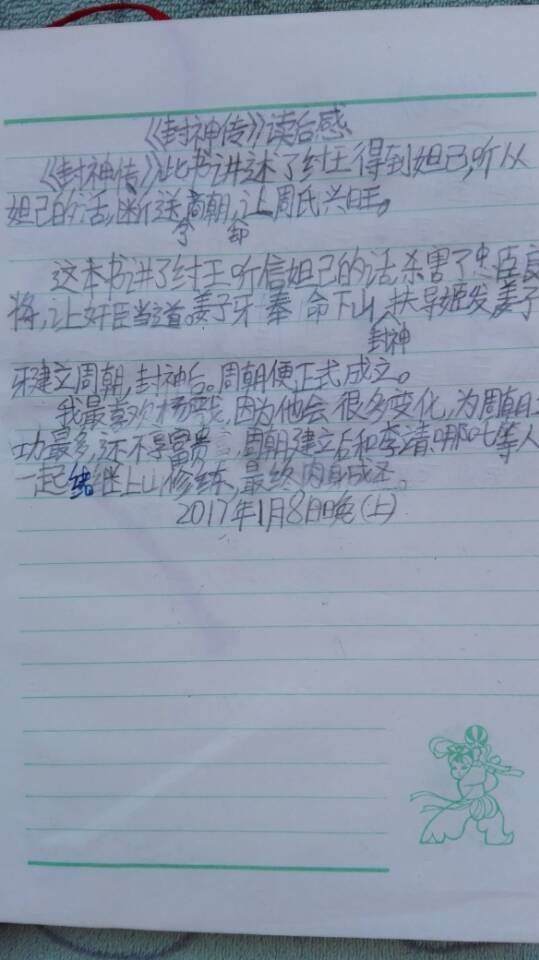 《封神传》读后感
《封神传》此书讲述了纣王得到妲己,听从
妲己的话,断送商朝,让周氏兴旺。
这本书讲了纣王听信妲己的话杀害了忠臣良
将,让奸臣当道。姜子牙奉命下山,扶导姬发,姜子
封神
牙建立周朝,封神后。周朝便正式成立。
我最喜欢杨戬,因为他会很多变化,为周朝立
功最多,还不享富贵,周朝建立后和李靖.哪吒等人
一起继上山修练,最终肉身成圣。
2017年1月8日晚(上)